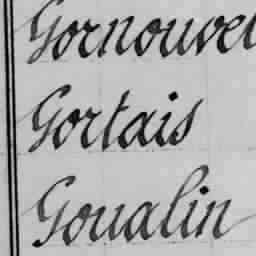 Gornouvel
Gortais
Goualin